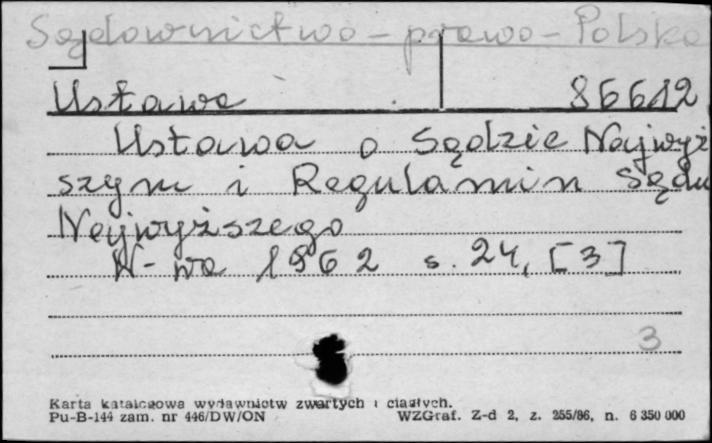 Sądownictwo - prawo - Polska
Ustawa 86612
Ustawa o Sądzie Najwyż
szym i Regulamin Sądu
Najwyższego
W-wa 1962 s. 24, [3]
3
Karta katalogowa wydawnictw zwartych i ciągłych.
Pu-B-144 zam. nr 446/DW/ON WZGraf. Z-d 2, z. 255/86, n. 6 350 000